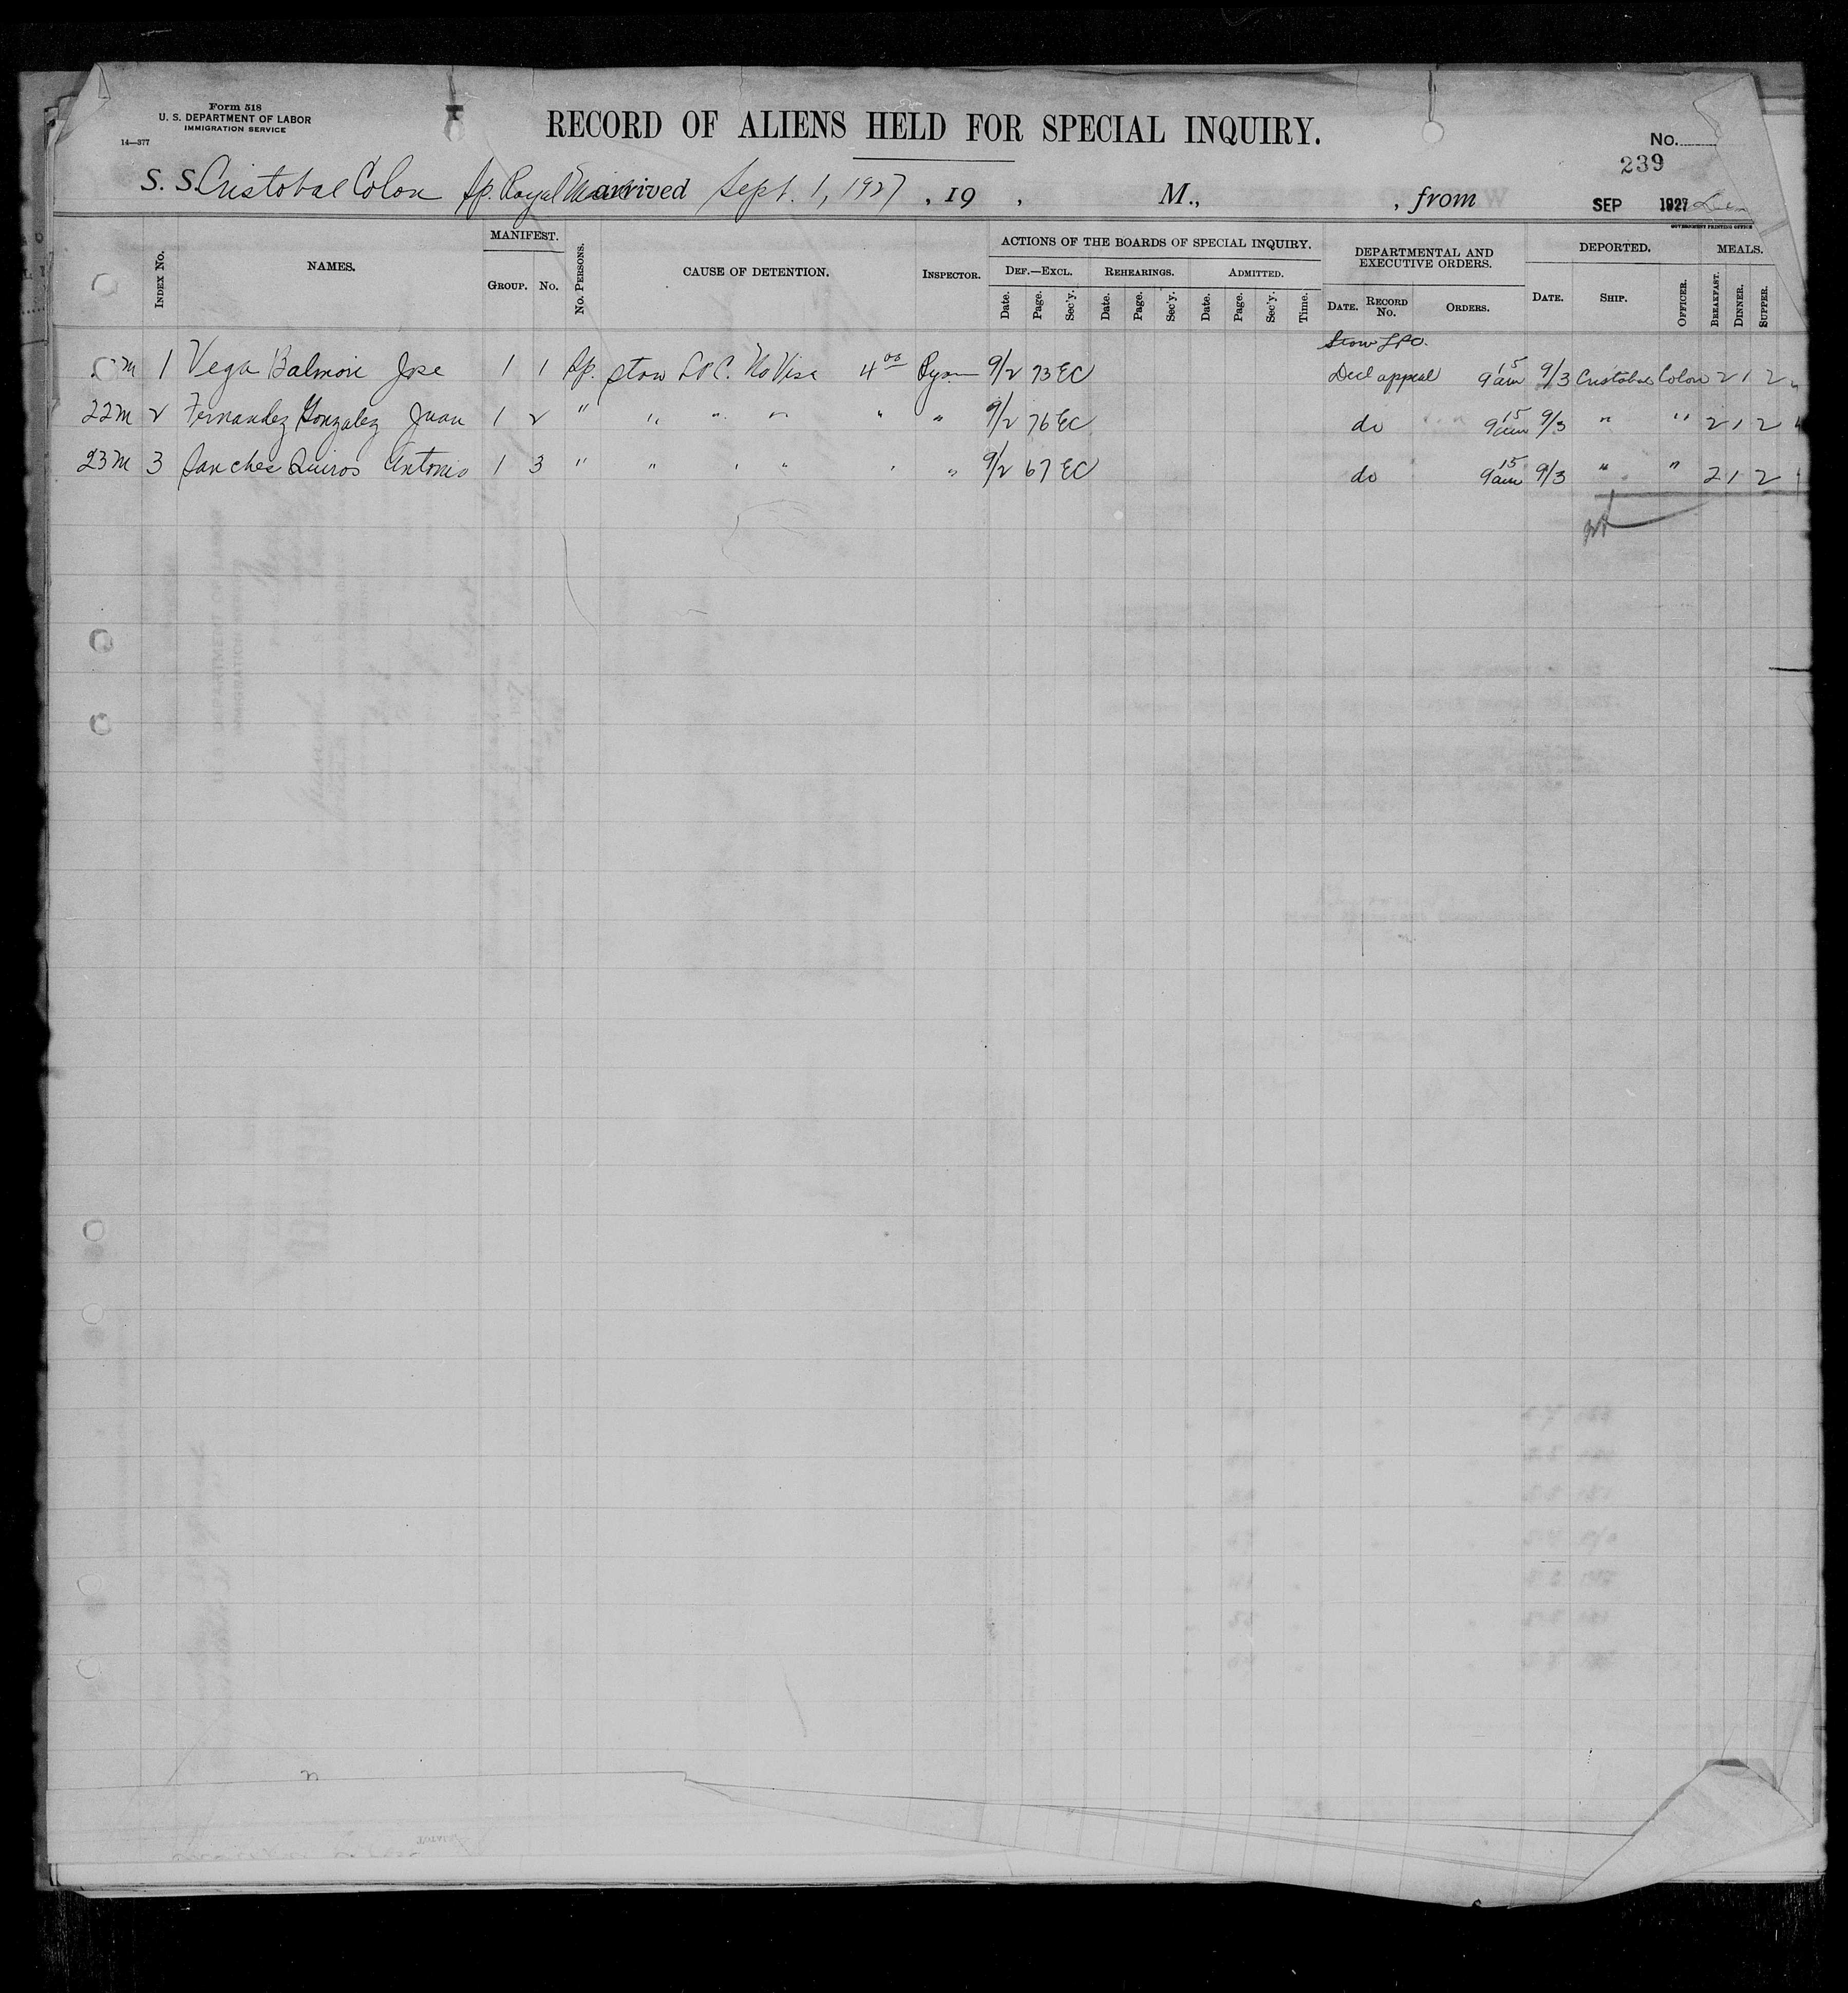 Form 518
U. S. DEPARTMENT OF LABOR
IMMIGRATION SERVICE
14—377
RECORD OF ALIENS HELD FOR SPECIAL INQUIRY.
No.
239
S. S. Cristobal Colon Sp. Royal Mail arrived Sept. 1, 1927, 19 , M., , from
SEP 1927
GOVERNMENT PRINTING OFFICE
INDEX No.
NAMES.
MANIFEST.
GROUP. No.
No. PERSONS.
CAUSE OF DETENTION.
INSPECTOR.
ACTIONS OF THE BOARDS OF SPECIAL INQUIRY.
DEF.—EXCL. REHEARINGS. ADMITTED.
Date. Page. Sec'y. Date. Page. Sec'y. Date. Page. Sec'y. Time.
DEPARTMENTAL AND
EXECUTIVE ORDERS.
DATE. RECORD No. ORDERS.
DEPORTED.
DATE. SHIP. OFFICER.
MEALS.
BREAKFAST. DINNER. SUPPER.
Stow LPC.
m 1 Vega Balmori Jose 1 1 Sp. Stow LPC. No Visa 4 00 9/2 73 EC Decl appeal 9 15 am 9/3 Cristobal Colon 2 1 2
22 m 2 Fernandez Gonzalez Juan 1 2 " " " " " " 9/2 76 EC do 9 15 am 9/3 " " 2 1 2
23 m 3 Sanches Quiros Antonio 1 3 " " " " " " 9/2 67 EC do 9 15 am 9/3 " " 2 1 2